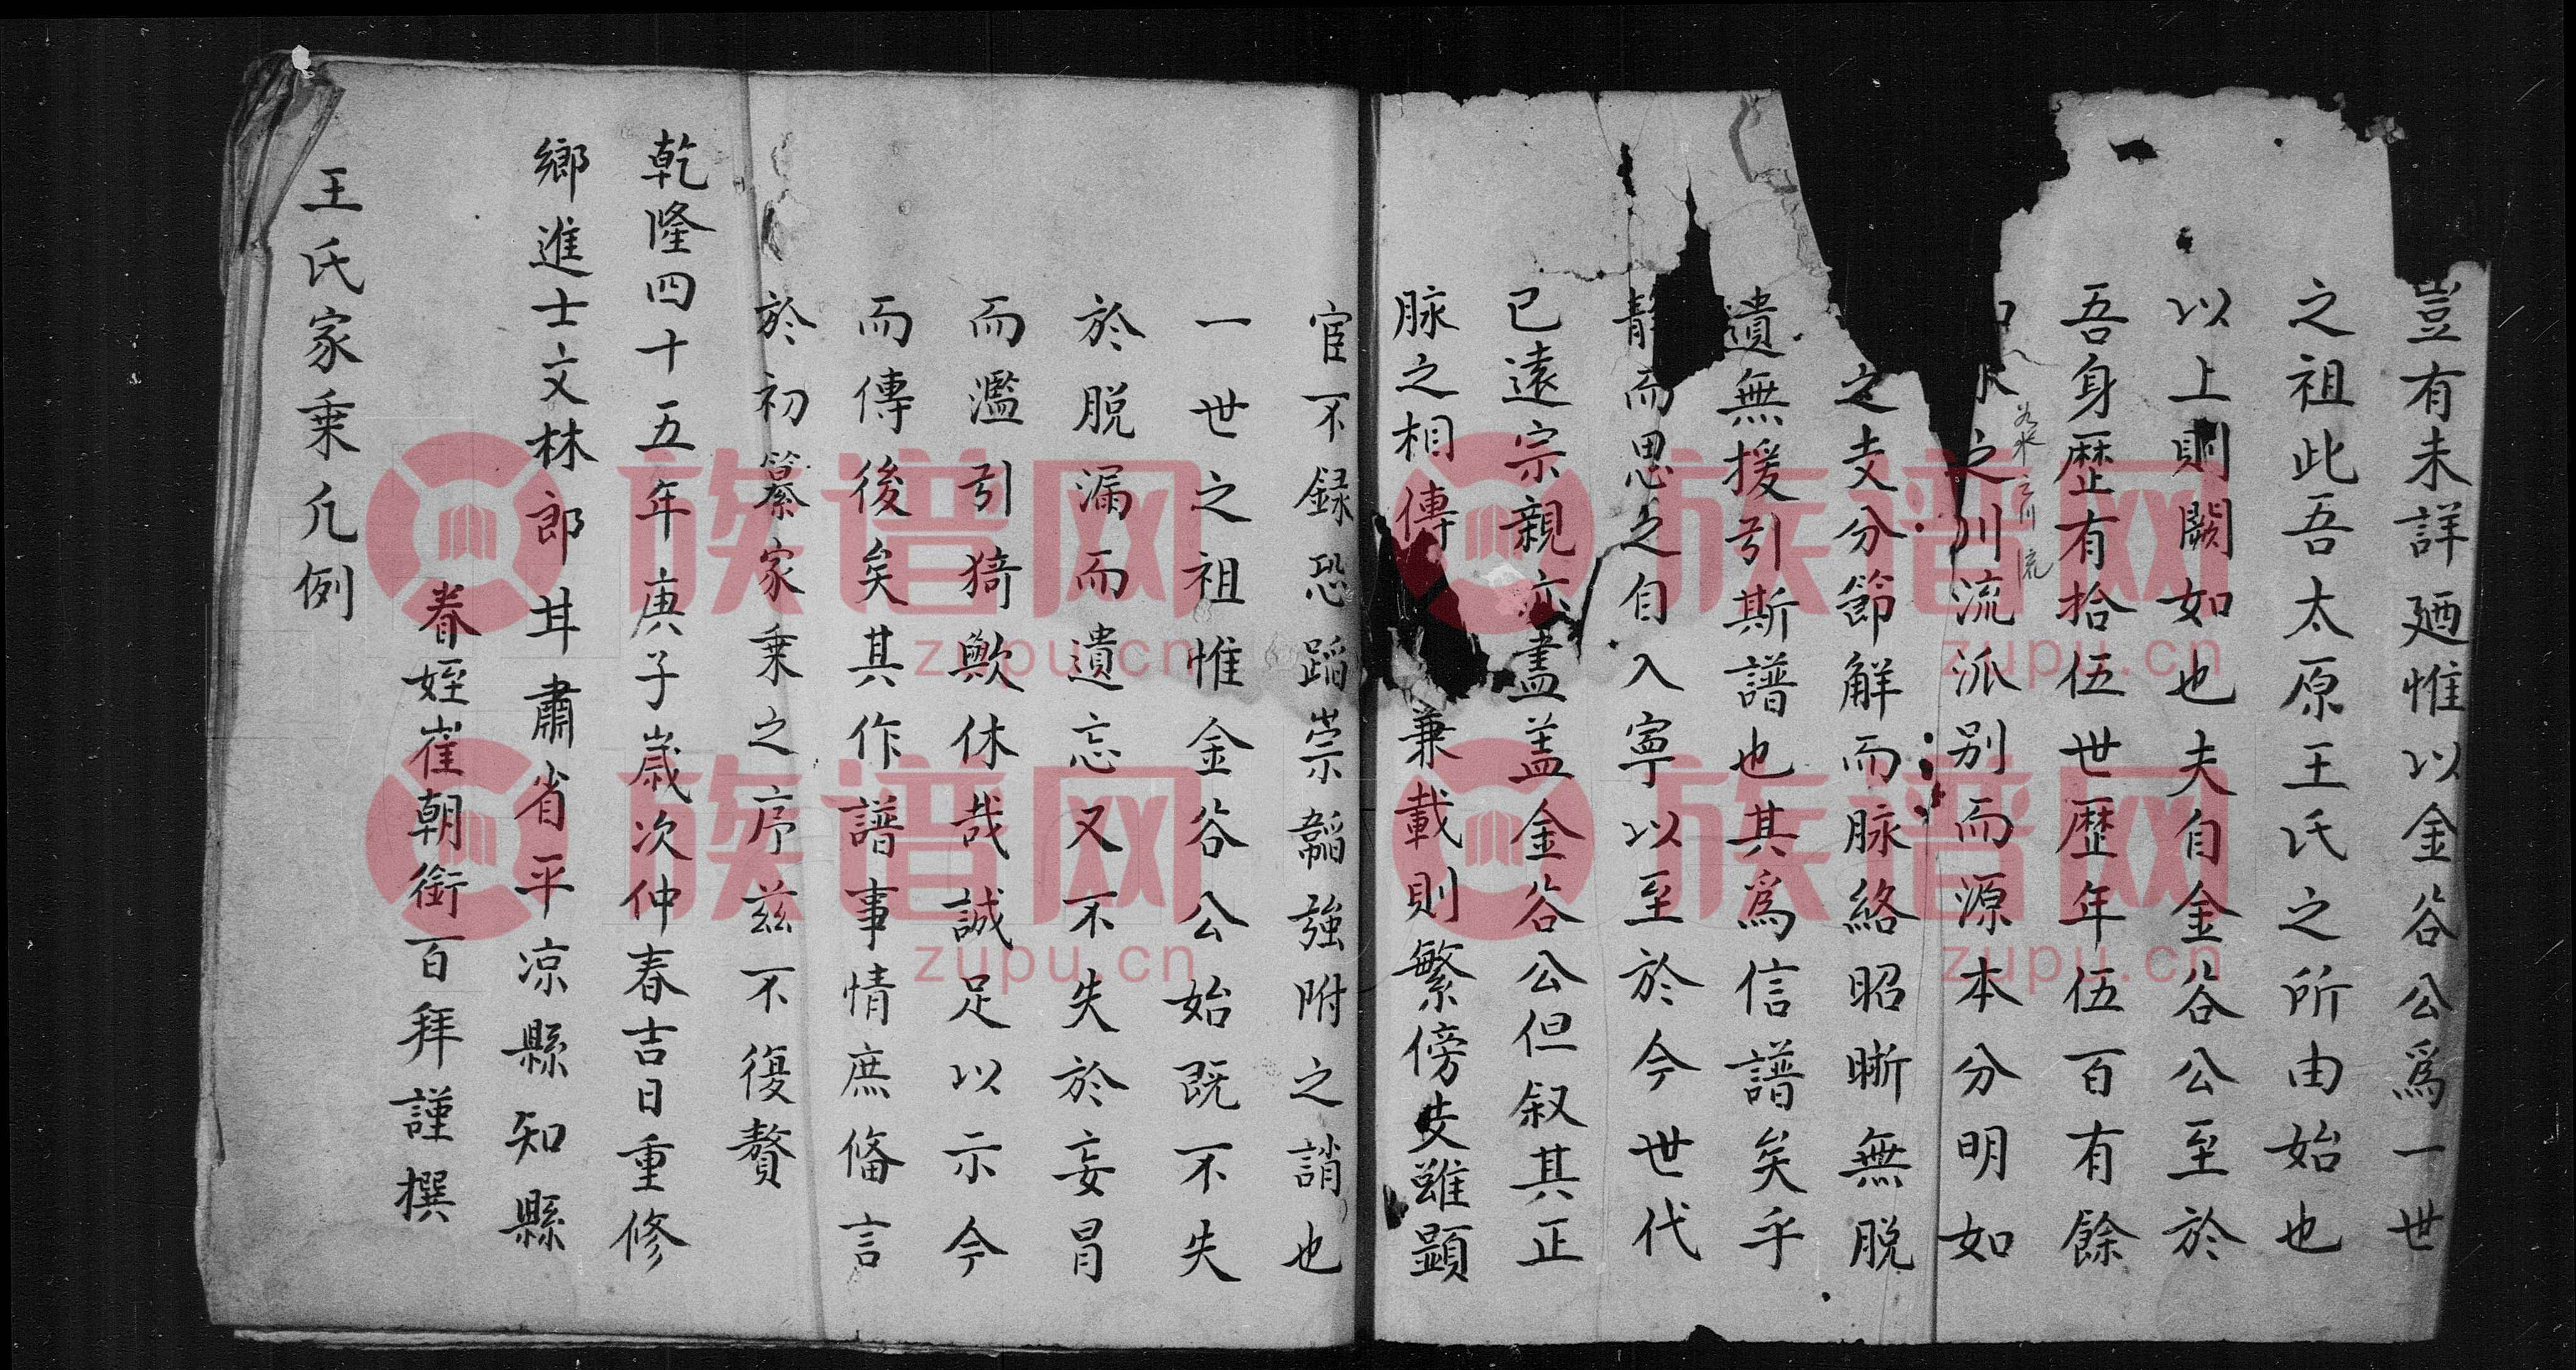 豈有未詳廼惟以金谷公爲一世
之祖此吾太原王氏之所由始也
以上則闕如也夫自金谷公至於
吾身歷有拾伍世歷年伍百有餘
若水之川流
之川流派别而源本分明如
之支分節解而脉絡昭晣無脱
遺無援引斯譜也其爲信譜矣乎
静而思之自入寧以至於今世代
已遠宗親亦盡盖金谷公但叙其正
脉之相傳兼載則繁傍支雖顯
宦不録恐蹈崇韜強附之誚也
一世之祖惟金谷公始既不失
於脱漏而遺忘又不失於妄冒
而濫引猗歟休哉誠足以示今
而傳後矣其作譜事情庶偹言
於初纂家乗之序兹不復贅
乾隆四十五年庚子歲次仲春吉日重修
鄉進士文林郎甘肅省平凉縣知縣
眷姪崔朝銜百拜謹撰
王氏家乗凢例
族谱网
zupu.cn
族谱网
zupu.cn
族谱网
zupu.cn
族谱网
zupu.cn